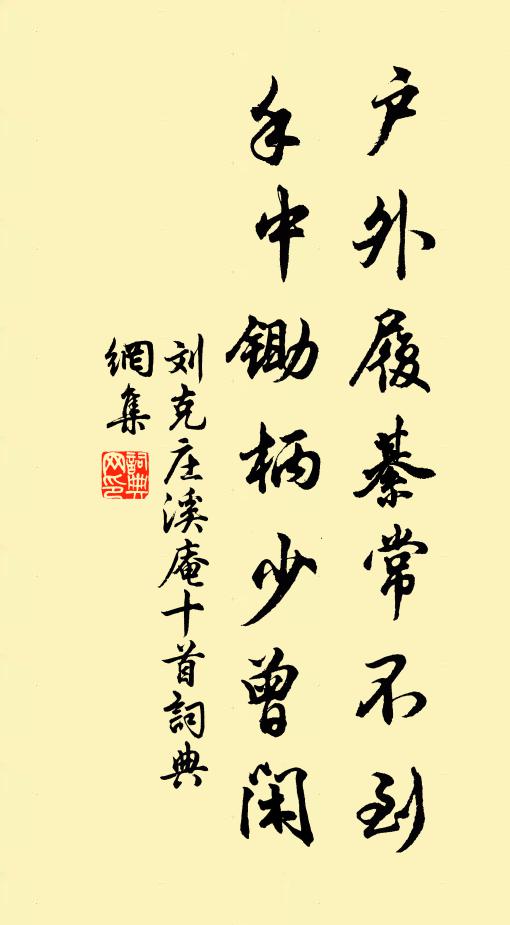 户外履綦常不到
手中锄柄少曾闲
刘克庄溪庵十首詞典
網集
詞典網印